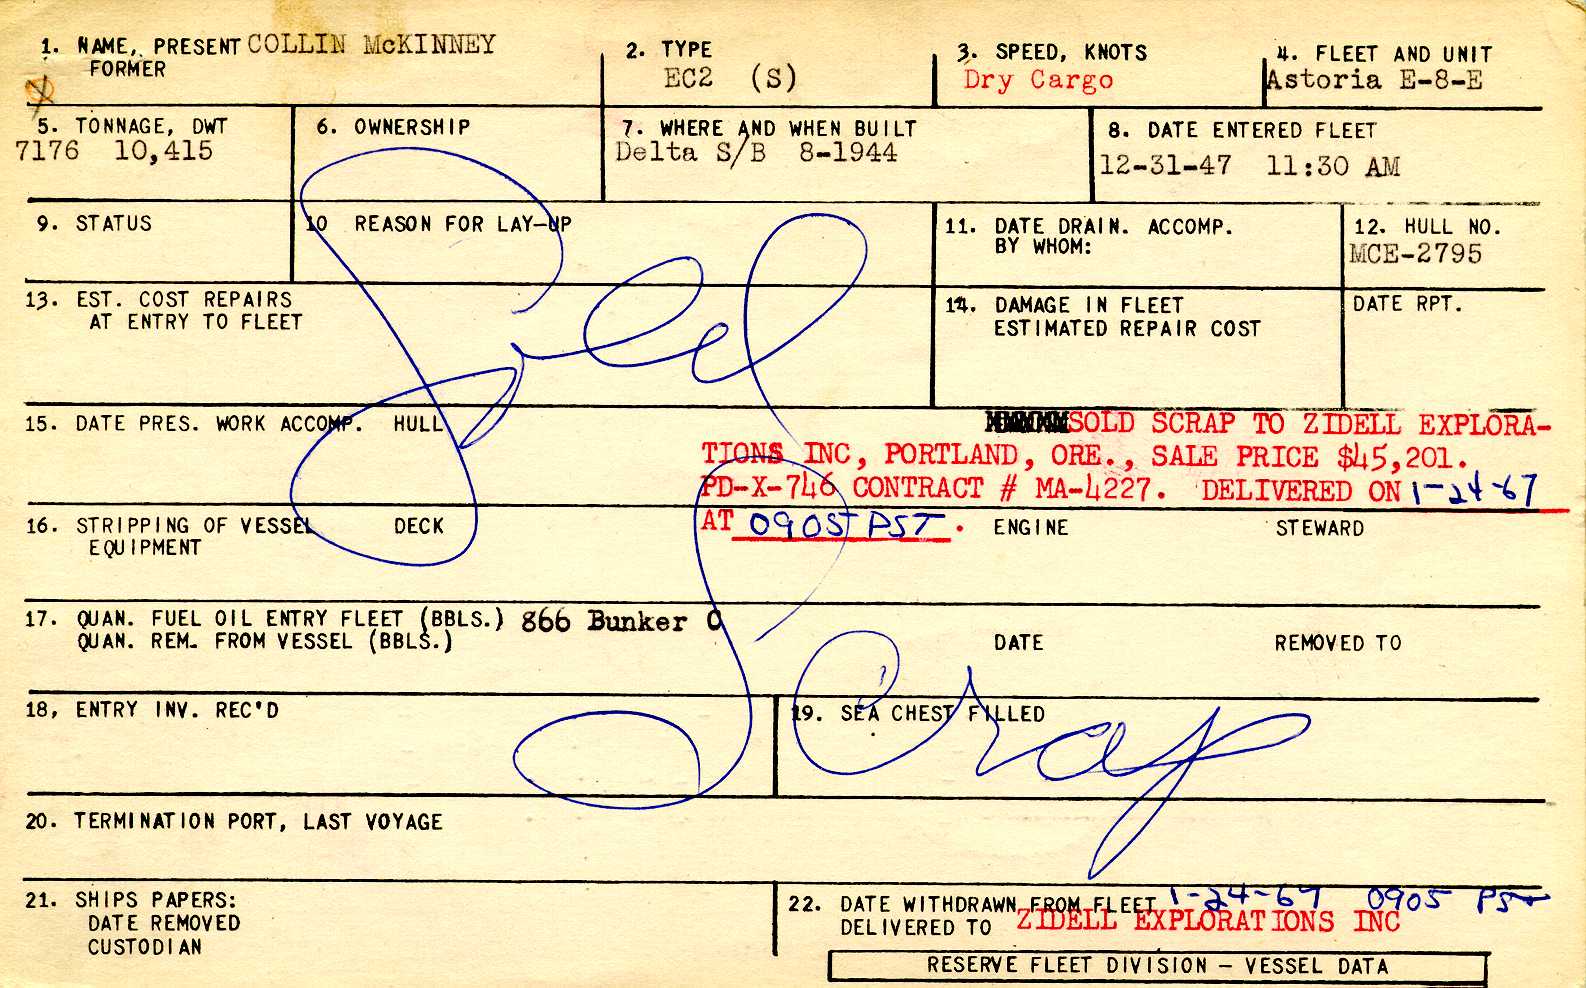 1. NAME, PRESENT COLLIN McKINNEY
FORMER
2. TYPE
EC2 (S)
3. SPEED, KNOTS
Dry Cargo
4. FLEET AND UNIT
Astoria E-8-E
5. TONNAGE, DWT
7176 10,415
6. OWNERSHIP
7. WHERE AND WHEN BUILT
Delta S/B 8-1944
8. DATE ENTERED FLEET
12-31-47 11:30 AM
9. STATUS
10 REASON FOR LAY-UP
11. DATE DRAIN. ACCOMP.
BY WHOM:
12. HULL NO.
MCE-2795
13. EST. COST REPAIRS
AT ENTRY TO FLEET
14. DAMAGE IN FLEET
ESTIMATED REPAIR COST
DATE RPT.
15. DATE PRES. WORK ACCOMP. HULL
SOLD SCRAP TO ZIDELL EXPLORA-
TIONS INC, PORTLAND, ORE., SALE PRICE $45,201.
PD-X-746 CONTRACT # MA-4227. DELIVERED ON 1-24-67
AT 0905 PST.
16. STRIPPING OF VESSEL DECK ENGINE STEWARD
EQUIPMENT
17. QUAN. FUEL OIL ENTRY FLEET (BBLS.) 866 Bunker C
QUAN. REM. FROM VESSEL (BBLS.) DATE REMOVED TO
18, ENTRY INV. REC'D
19. SEA CHEST FILLED
Scrap
20. TERMINATION PORT, LAST VOYAGE
21. SHIPS PAPERS:
DATE REMOVED
CUSTODIAN
22. DATE WITHDRAWN FROM FLEET 1-24-67 0905 PST
DELIVERED TO ZIDELL EXPLORATIONS INC
RESERVE FLEET DIVISION – VESSEL DATA